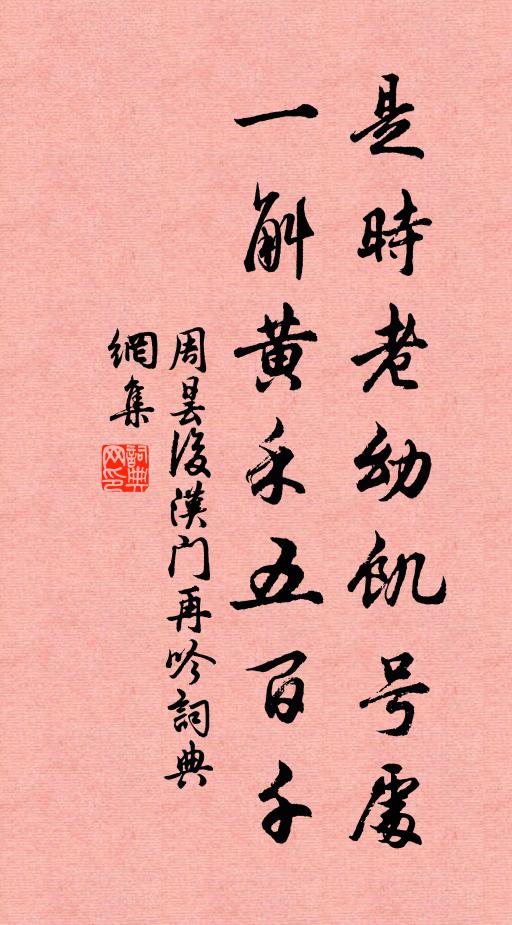 是時老幼飢号處
一斛黄禾五百千
周昙後漢门再吟詞典
網集
詞典网印